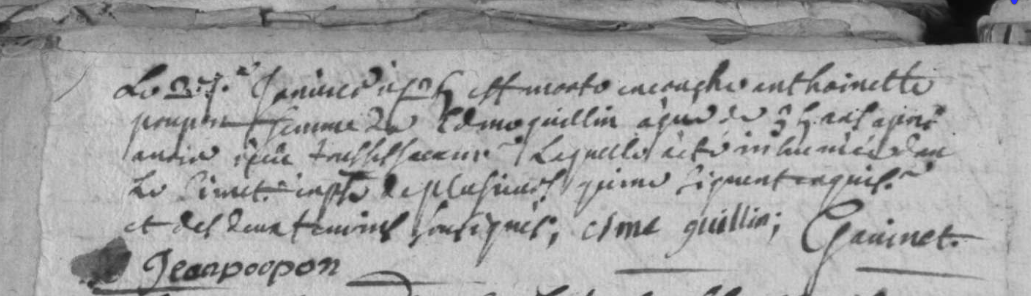 Le janvier est morte encouche anthoinette
poupon femme de Edme quillin agee de ans apres
avoir reçu tous les sacmens Laquelle a ete inhumée dan
Le Simet. de plusieurs qui ne signent enquis.
et des deux temoins sousignés, eLme quillin; Gauinet.
Jean poopon